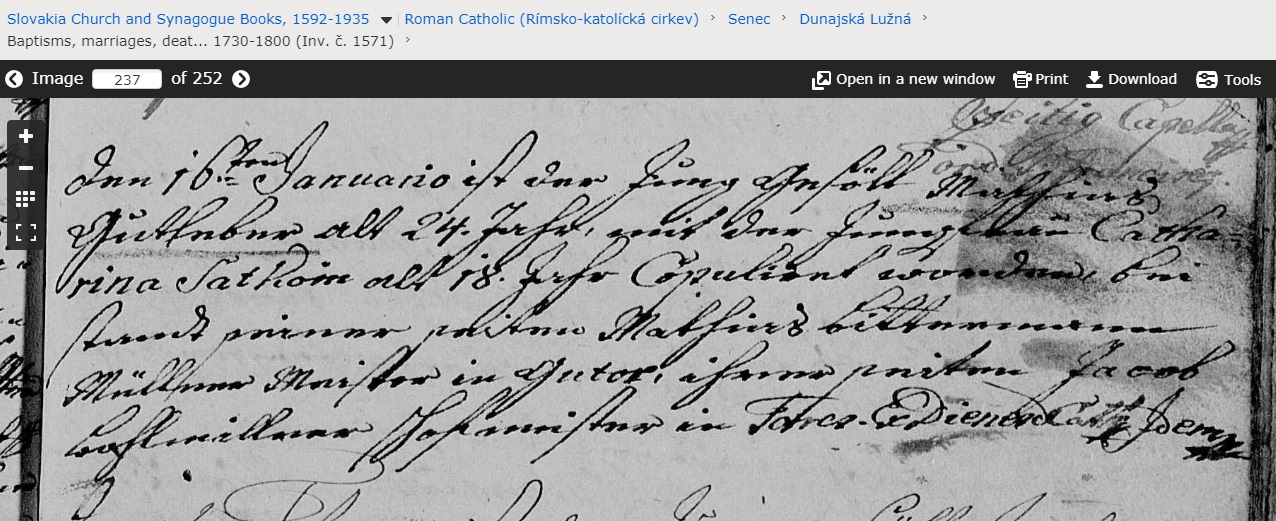 Slovakia Church and Synagogue Books, 1592-1935 Roman Catholic (Rímsko-katolícká cirkev) › Senec › Dunajská Lužná ›
Baptisms, marriages, deat... 1730-1800 (Inv. č. 1571) ›
Image 237 of 252 Open in a new window Print Download Tools
den 16ten Januario ist der Jung Gesöll Mathias
Gutleber alt 24. Jahr, mit der Jungfrau Catha=
rina Sathom alt 18. Jahr Copuliret worden, bei
standt seiner seiten Mathias bittermann
Müllner Meister in Gutor, ihrer seiten Jacob
Hofmeister in